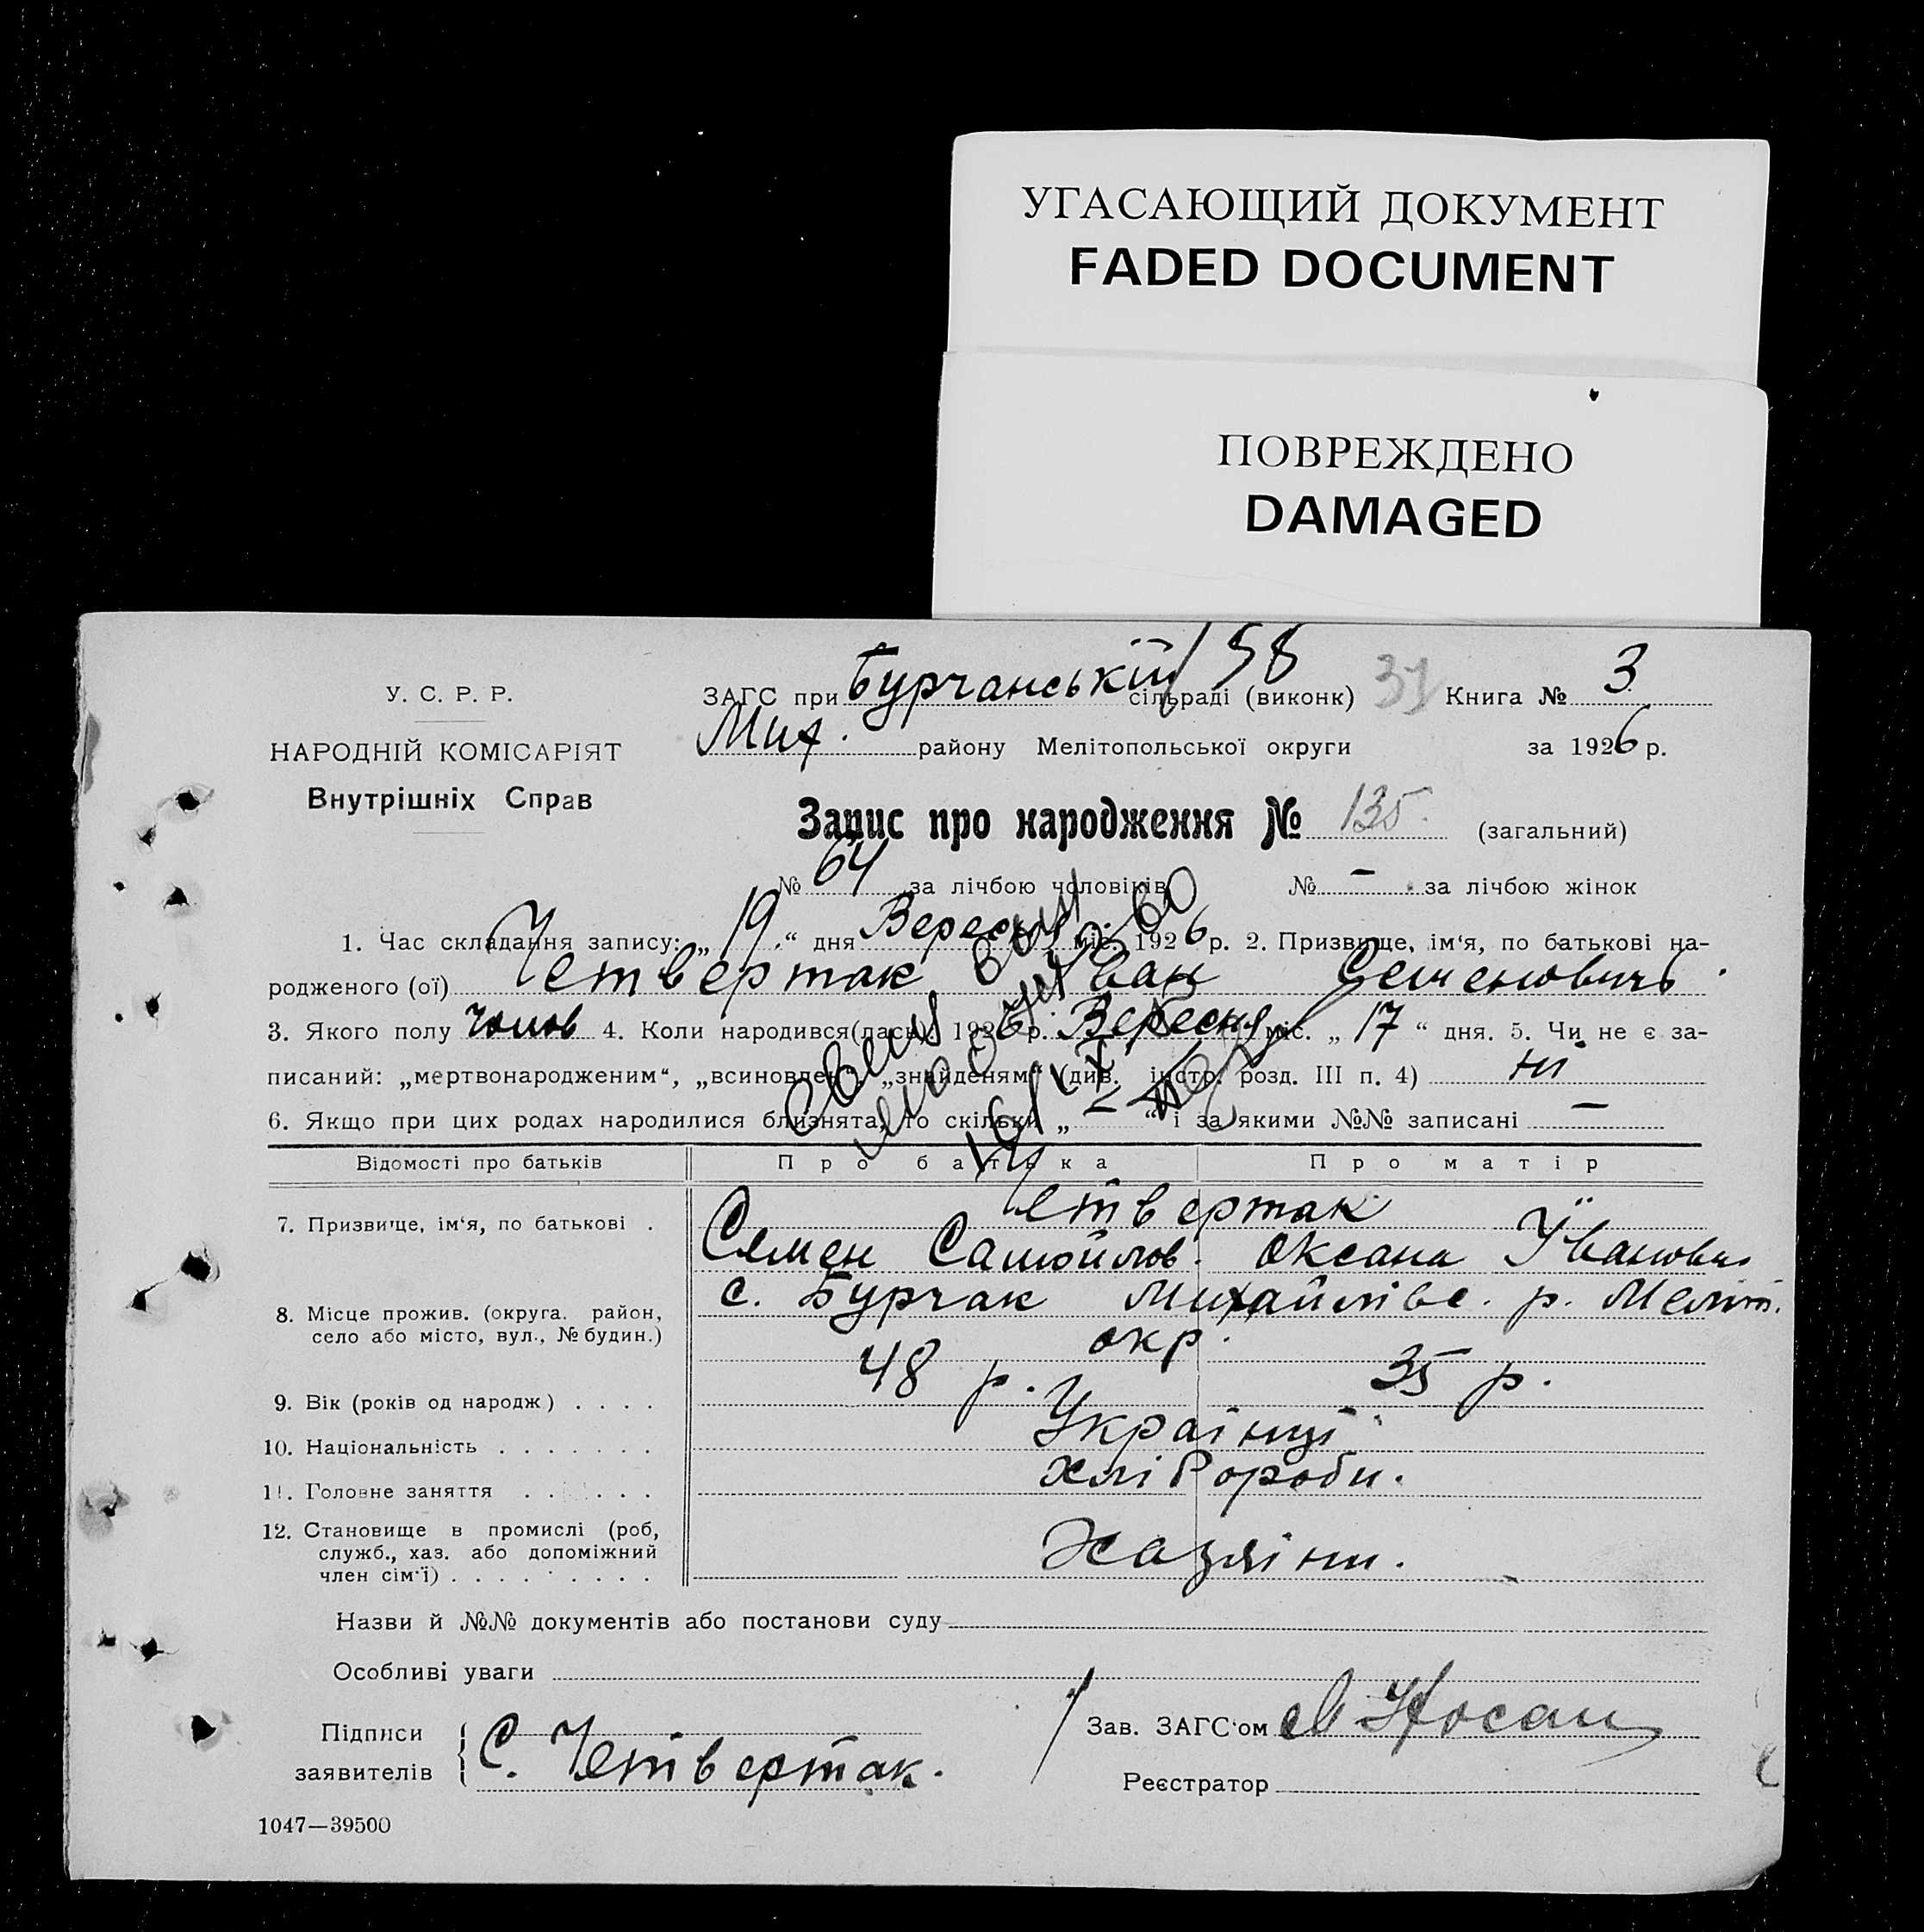 УГАСАЮЩИЙ ДОКУМЕНТ
FADED DOCUMENT
ПОВРЕЖДЕНО
DAMAGED
У. С. Р. Р.
НАРОДНІЙ КОМІСАРІЯТ
Внутрішніх Справ
ЗАГС при Бурчанській сільраді (виконк) 158 31 Книга № 3
Мих. району Мелітопольської округи за 1926 р.
Запис про народження № 135. (загальний)
№ 64 за лічбою чоловіків № – за лічбою жінок
1. Час складання запису: „19“ дня Вересня міс. 1926 р. 2. Призвище, ім'я, по батькові на-
родженого (ої) Четвертак Іван Семеновичь.
3. Якого полу чолов 4. Коли народився(лась): 1926 р. Вересня міс. „17“ дня. 5. Чи не є за-
писаний: „мертвонародженим“, „всиновлен“, „знайденям“ (див. інстр. розд. III п. 4) ні
6. Якщо при цих родах народилися близнята, то скільки „–“ і за якими №№ записані –
Відомості про батьків Про батька Про матір
7. Призвище, ім'я, по батькові .
Четвертак
Семен Самойлов. Оксана Івановна
8. Місце прожив. (округа. район,
село або місто, вул., № будин.)
с. Бурчак Михайлівс. р. Меліт.
окр.
9. Вік (років од народж) . . . . 48 р. 35 р.
10. Національність . . . . . . . Українці
11. Головне заняття . . . . . . Хлібороби.
12. Становище в промислі (роб,
служб., хаз. або допоміжний
член сім'ї) . . . . . . . . . Хазяіни.
Назви й №№ документів або постанови суду
Особливі уваги
Підписи
заявителів
С. Четвертак.
Зав. ЗАГС'ом Носан
Реєстратор
1047—39500